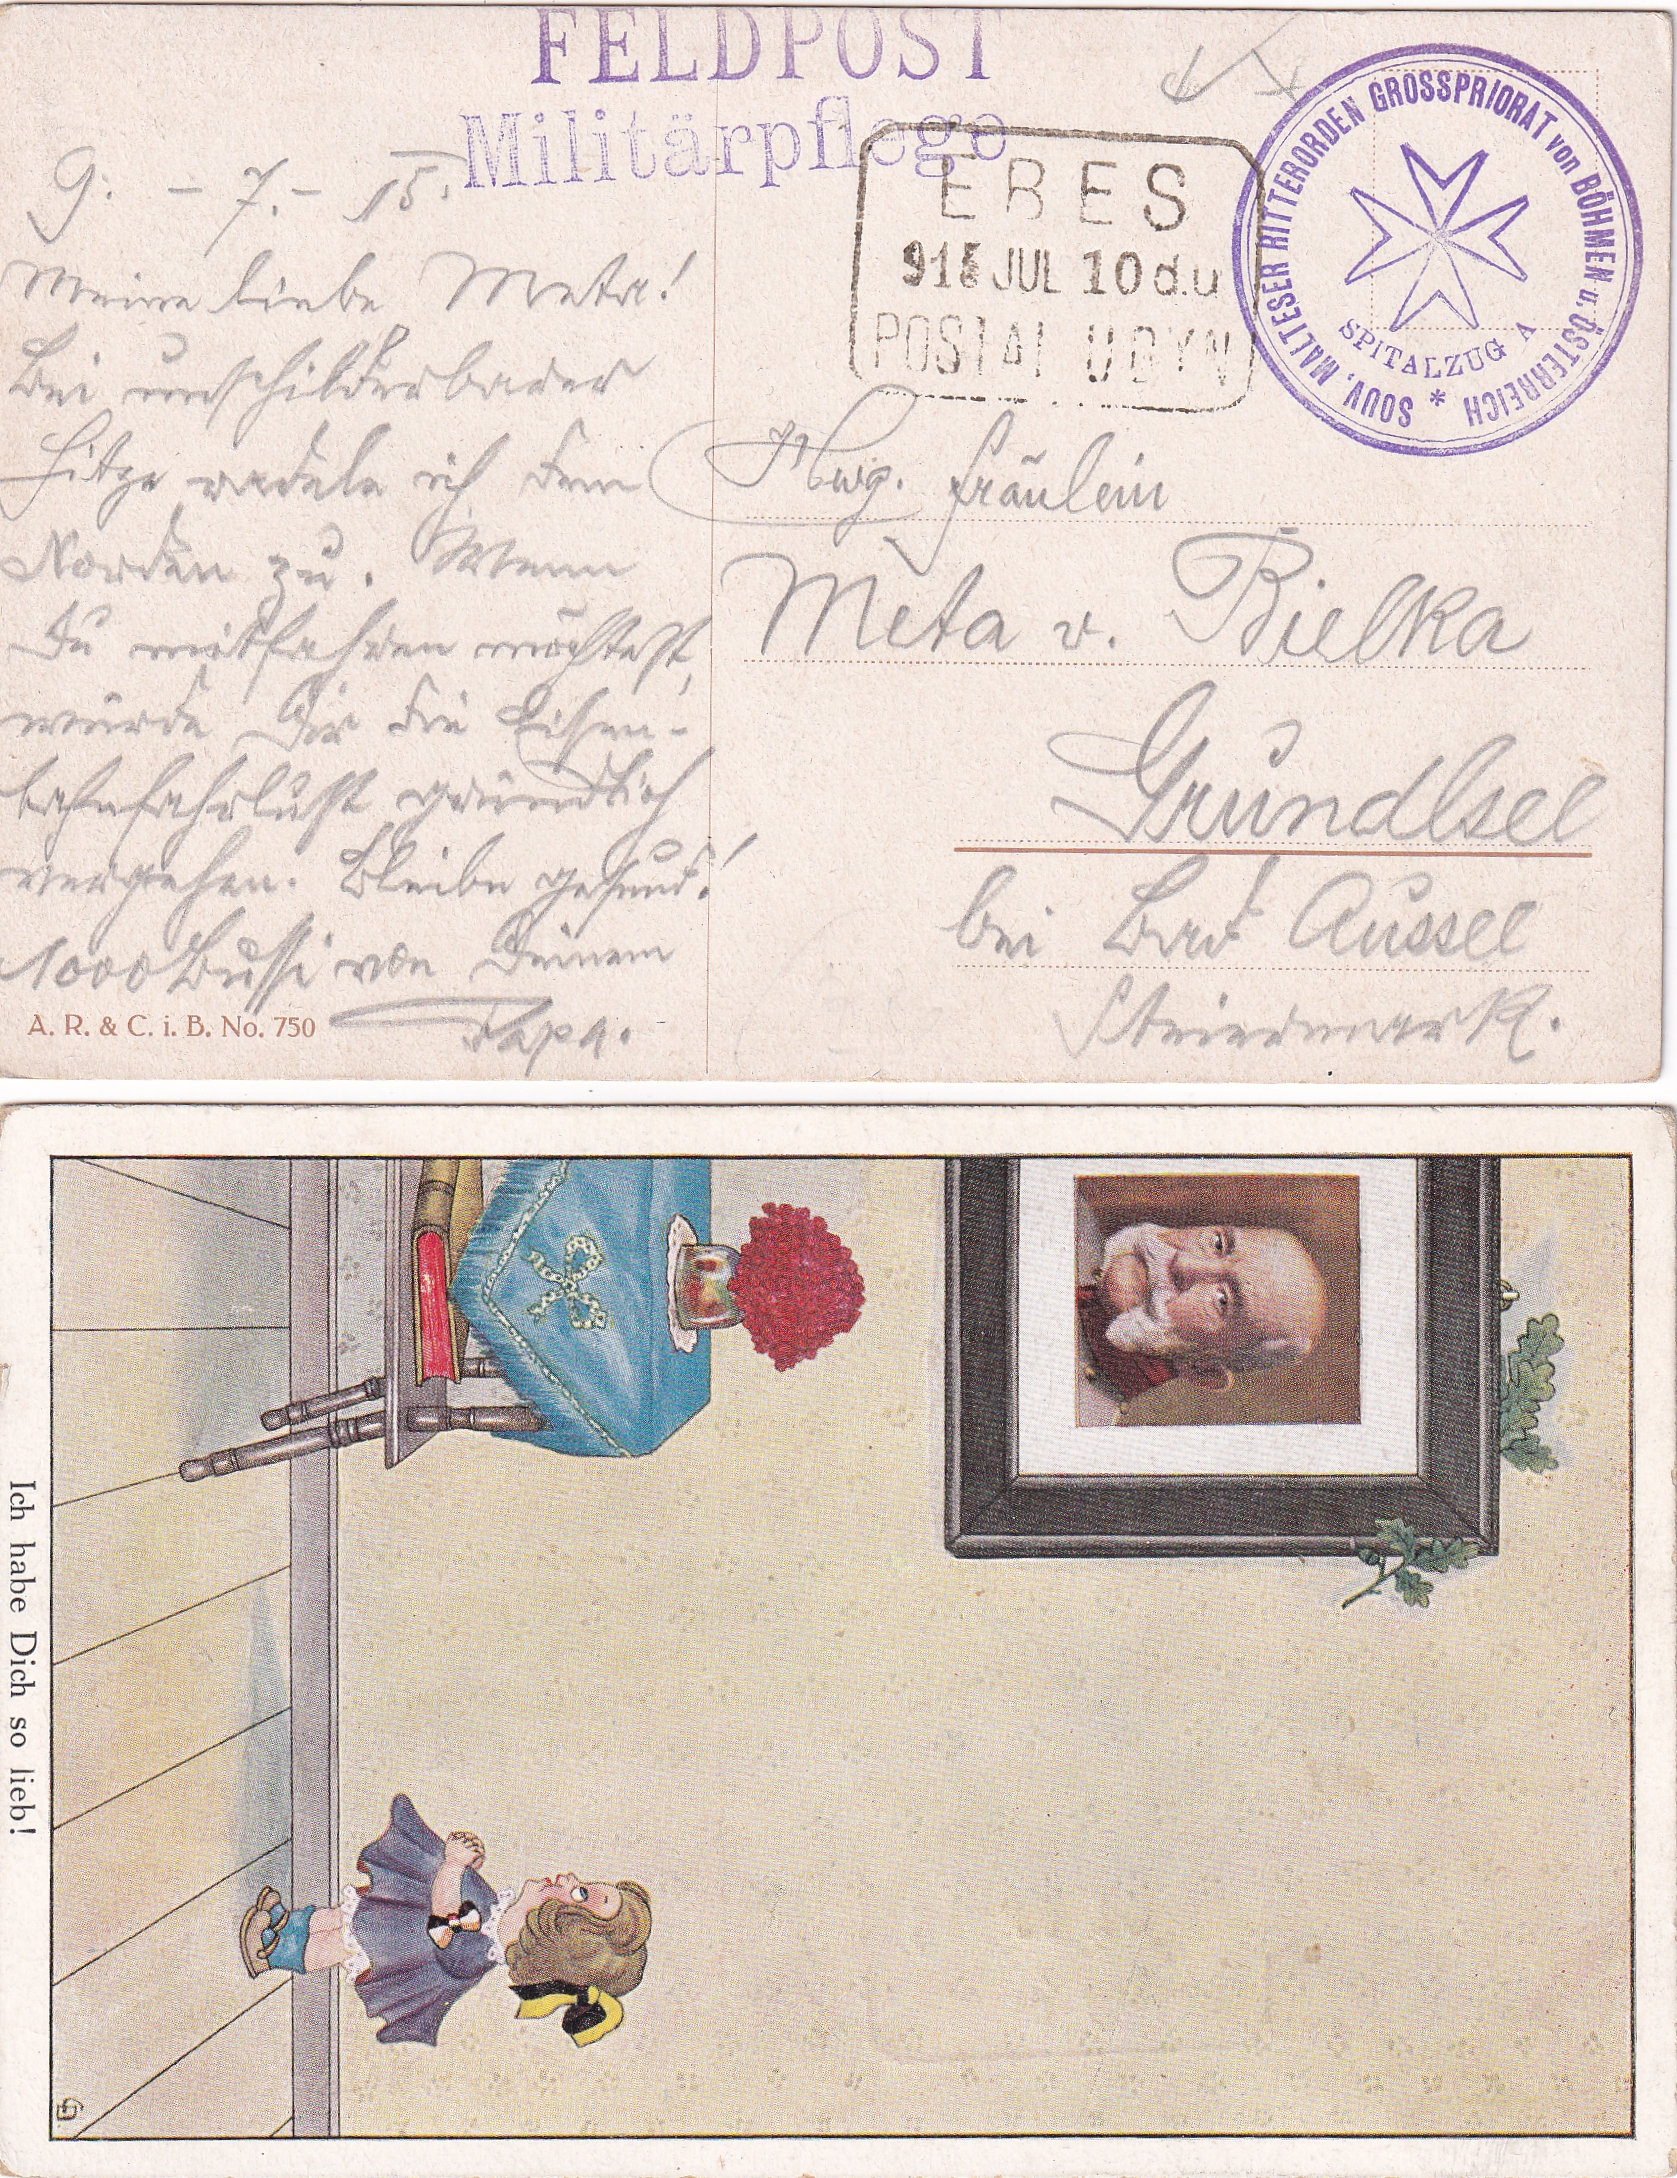 FELDPOST
Militärpflege
EBES
915 JUL 10 d.u
POSTAI UGYN
SOUV. MALTESER RITTERORDEN GROSSPRIORAT von BÖHMEN u. ÖSTERREICH *
SPITALZUG A
9. - 7. - 15.
Meine liebe Meta!
Bei unschilderbarer
Hitze radele ich dem
Norden zu. Wenn
Du mitfahren möchtest,
würde Dir die Eisen-
bahnfahrlust gründlich
vergehen. Bleibe gesund!
1000 Bussi von Deinem
Papa.
A. R. & C. i. B. No. 750
Fräulein
Meta v. Bielka
Grundlsee
bei Bad Aussee
Steiermark.
Ich habe Dich so lieb!